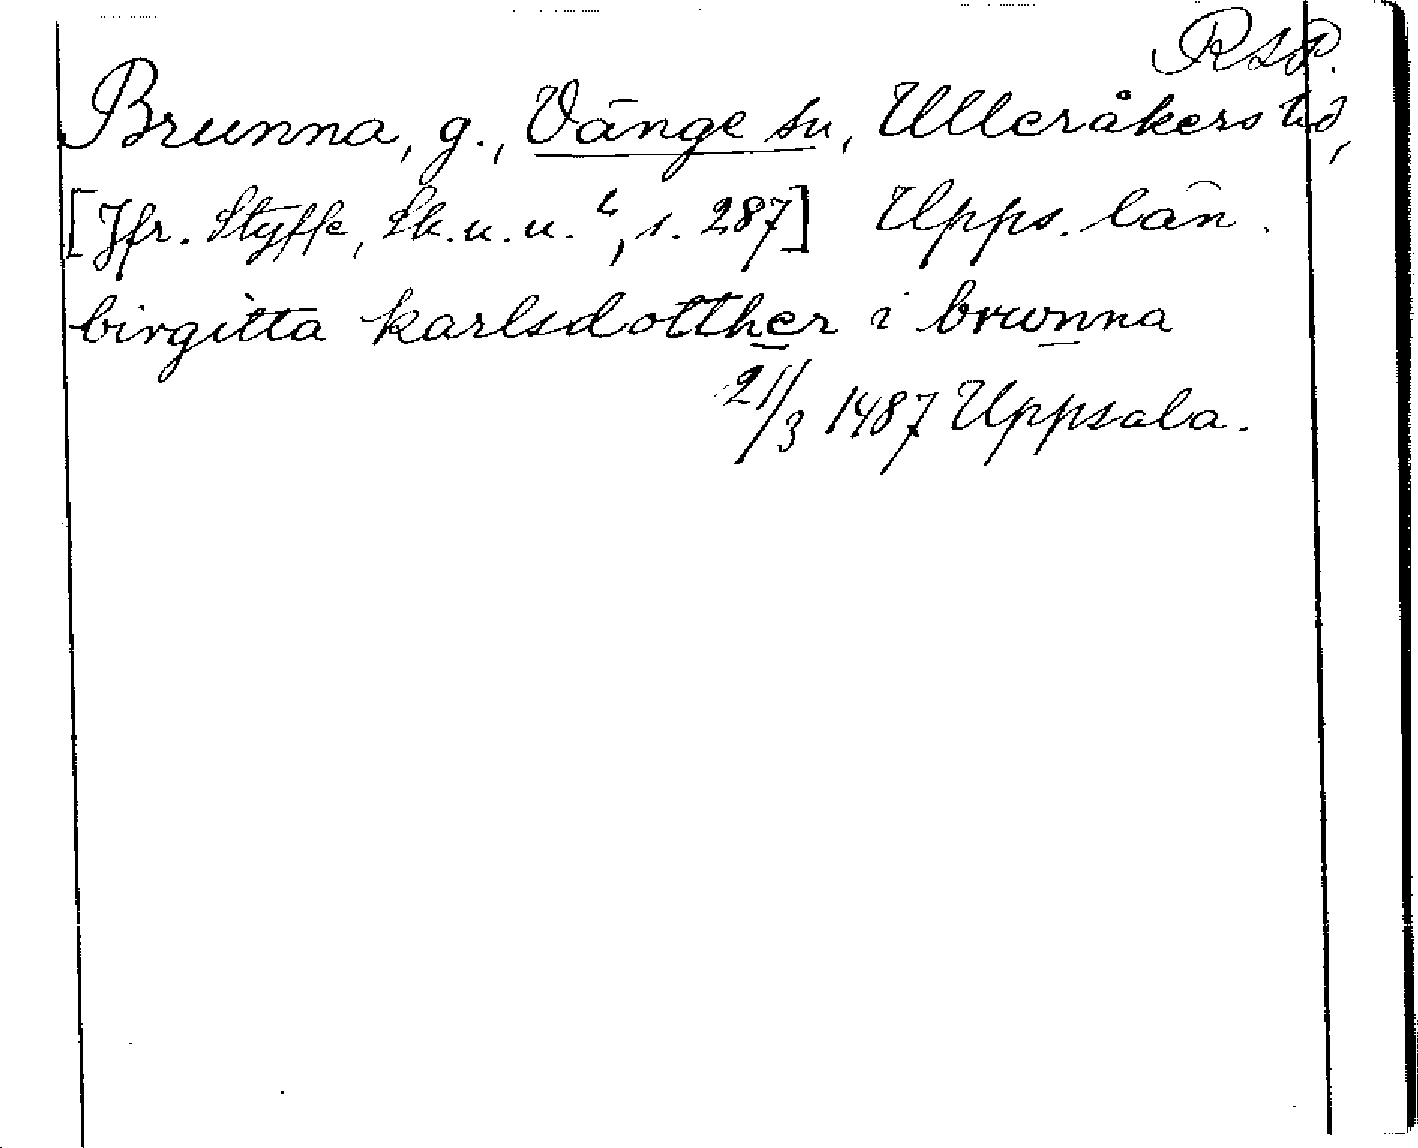 RAP.
Brunna, g., Vänge sn, Ulleråkers hd,
[Jfr. Styffe, Sk.u.u.², s. 287] Upps. län.
birgitta karlsdotther i brwnna
21/3 1487 Uppsala.